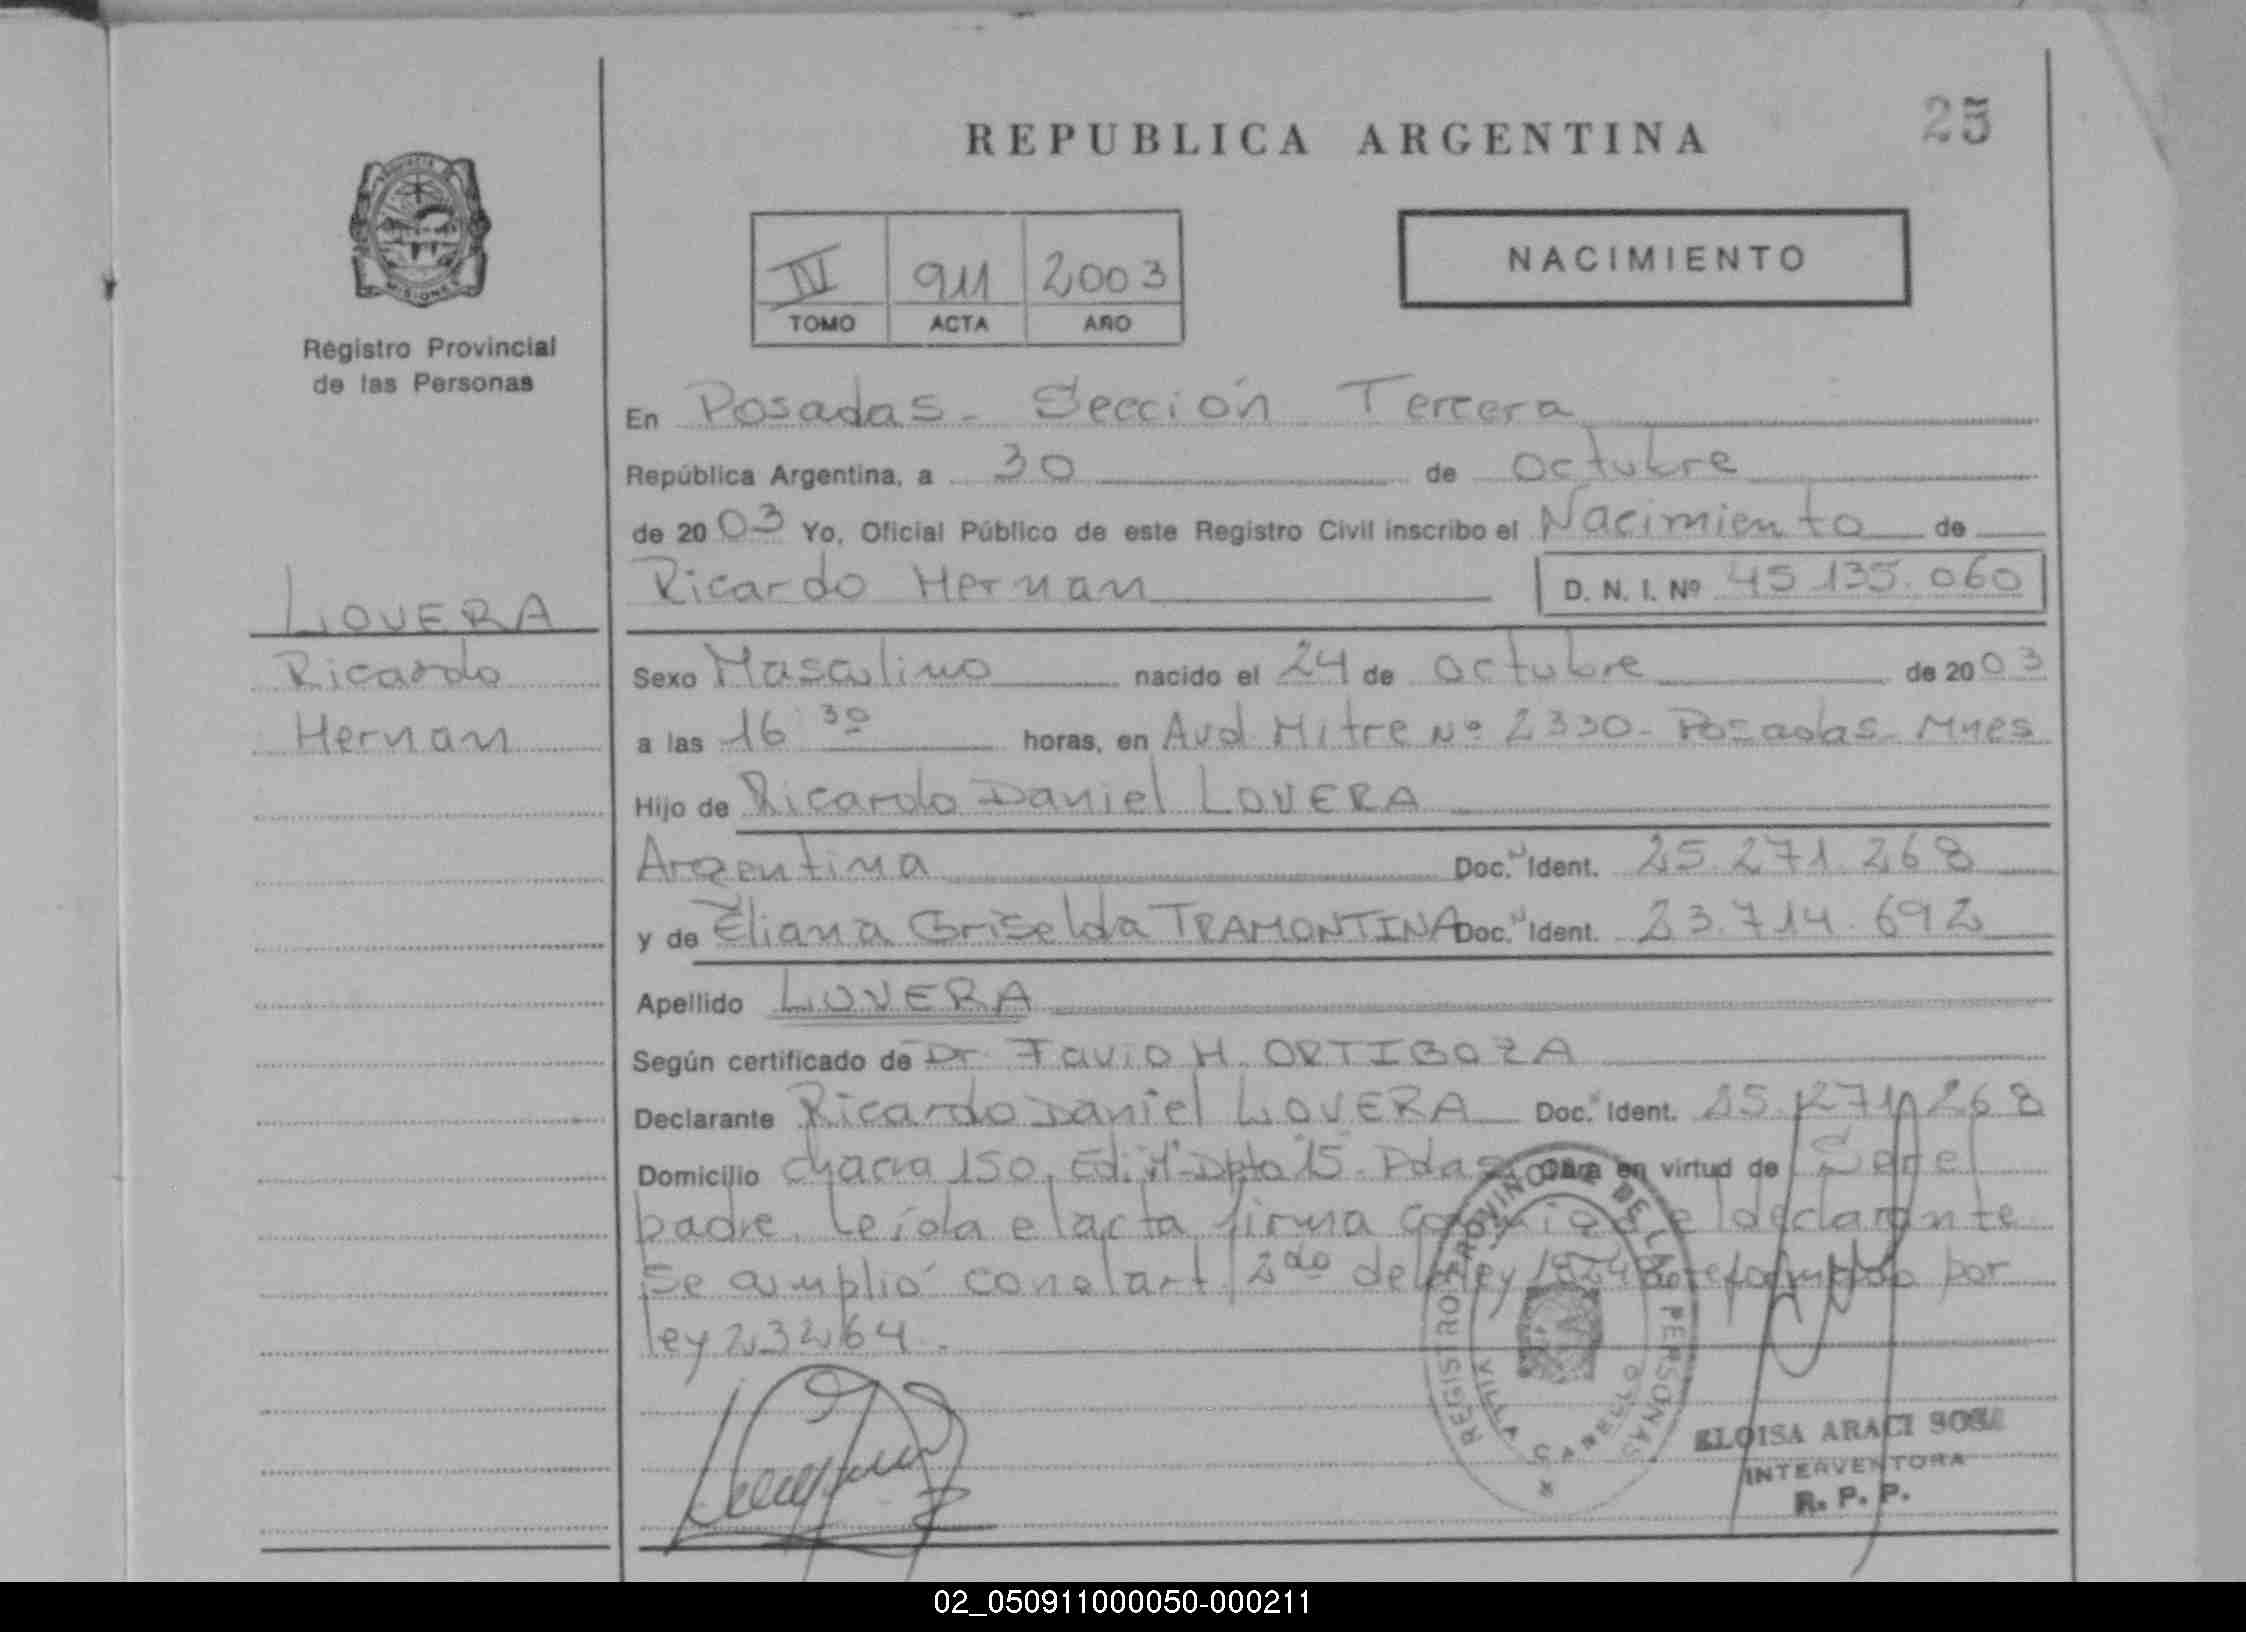 REPUBLICA ARGENTINA
25
PROVINCIA DE
MISIONES
Registro Provincial
de las Personas
IV 911 2003
TOMO ACTA AÑO
NACIMIENTO
En Posadas - Sección Tercera
República Argentina, a 30 de octubre
de 2003 Yo, Oficial Público de este Registro Civil inscribo el Nacimiento de
Ricardo Hernan D. N. I. Nº 45.135.060
LOVERA
Ricardo
Hernan
Sexo Masculino nacido el 24 de octubre de 2003
a las 16 30 horas, en Avd Mitre Nº 2330 - Posadas - Mnes
Hijo de Ricardo Daniel LOVERA
Argentina Doc. Ident. 25.271.268
y de Eliana Griselda TRAMONTINA Doc. Ident. 23.714.692
Apellido LOVERA
Según certificado de Dr. Favio H. ORTIGOZA
Declarante Ricardo Daniel LOVERA Doc. Ident. 25.271.268
Domicilio Chacra 150. Ed. Dpto 15 - Pdas Obra en virtud de Ser el
padre. Leída el acta firma conmigo el declarante
Se amplió con el art. 2do de ley por
ley 23264.
REGISTRO PROVINCIAL DE LAS PERSONAS
VILLA CABELLO
ELOISA ARACI SOSA
INTERVENTORA
R. P. P.
02_050911000050-000211